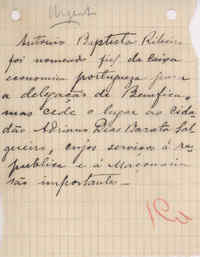 Urgente
Antonio Baptista Ribeiro
foi nomeado fiel da Caixa
economica portugueza para
a delegação de Bemfica,
mas cede o lugar ao Cida-
dão Adriano Dias Barata Sal-
gueiro, cujos serviços á re-
publica e á Maçonaria
são importantes.